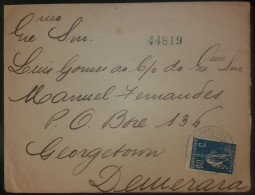 Exmo
Sr. Snr.
44819
Luis Gomes ao C/o do Exmo Snr
Manuel Fernandes
P. O. Boxe 136
Georgetown
Demerara